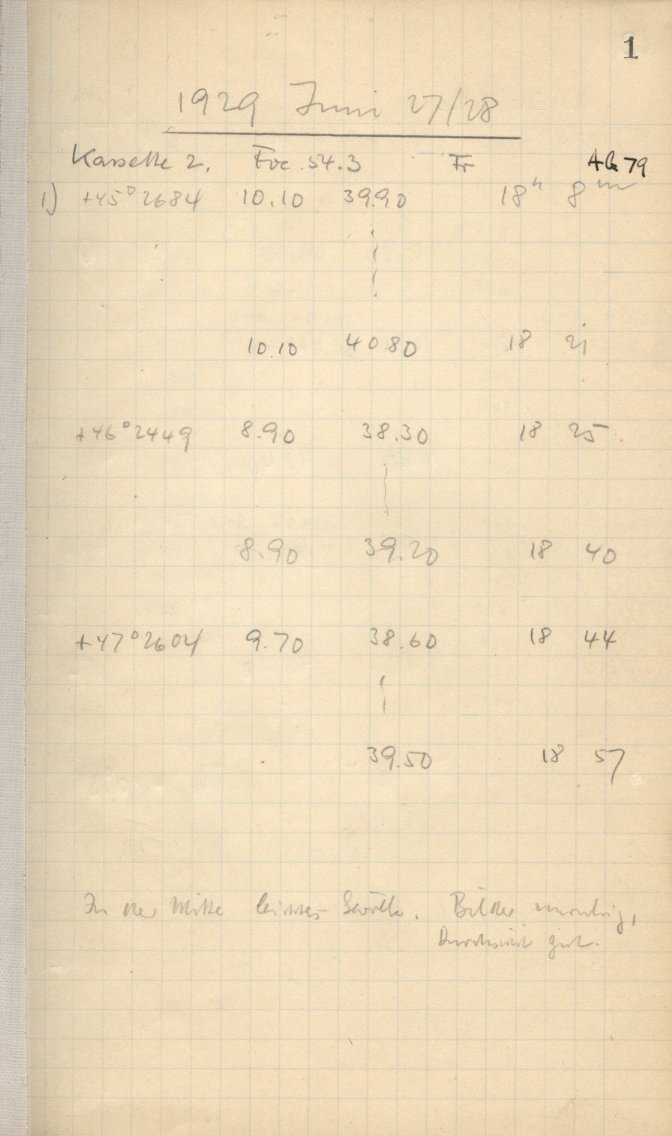 1
1929 Juni 27/28
Kassette 2. Foc. 54.3 Fr 79
1) +45° 2684 10.10 39.90 18h 8m
10.10 40.80 18 21
+46° 2449 8.90 38.30 18 25
8.90 39.20 18 40
+47° 2604 9.70 38.60 18 44
39.50 18 57
In der Mitte leichtes Gewölk. Bilder unruhig,
Durchsicht gut.